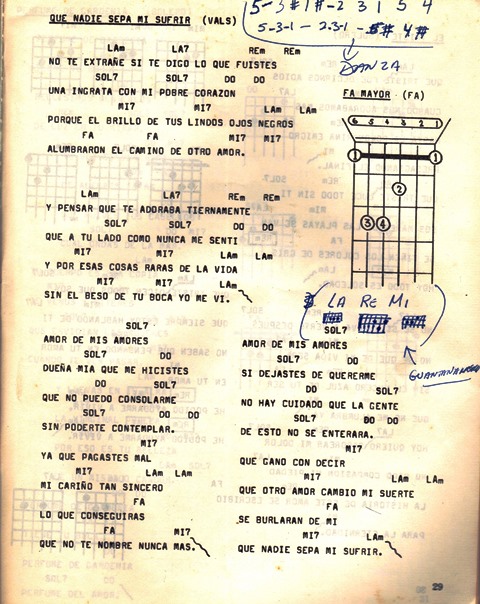 5-3#1#-2 3 1 5 4
5-3-1 - 2-3-1 - 5# 4#
QUE NADIE SEPA MI SUFRIR (VALS)
DANZA
LAm LA7 REm REm
NO TE EXTRAÑE SI TE DIGO LO QUE FUISTES
SOL7 SOL7 DO DO
UNA INGRATA CON MI POBRE CORAZON
MI7 MI7 LAm LAm
PORQUE EL BRILLO DE TUS LINDOS OJOS NEGROS
FA FA MI7 MI7
ALUMBRARON EL CAMINO DE OTRO AMOR.
FA MAYOR (FA)
6 5 4 3 2 1
1 1
2
3 4
LAm LA7 REm REm
Y PENSAR QUE TE ADORABA TIERNAMENTE
SOL7 SOL7 DO DO
QUE A TU LADO COMO NUNCA ME SENTI
MI7 MI7 LAm LAm
Y POR ESAS COSAS RARAS DE LA VIDA
MI7 MI7 LAm
SIN EL BESO DE TU BOCA YO ME VI.
LA RE MI
GUANTANAMERA
SOL7
AMOR DE MIS AMORES
SOL7 DO
DUEÑA MIA QUE ME HICISTES
DO SOL7
QUE NO PUEDO CONSOLARME
SOL7 DO DO
SIN PODERTE CONTEMPLAR.
MI7
YA QUE PAGASTES MAL
MI7 LAm LAm
MI CARIÑO TAN SINCERO
FA
LO QUE CONSEGUIRAS
FA MI7
QUE NO TE NOMBRE NUNCA MAS.
SOL7
AMOR DE MIS AMORES
SOL7 DO
SI DEJASTES DE QUERERME
DO SOL7
NO HAY CUIDADO QUE LA GENTE
SOL7 DO DO
DE ESTO NO SE ENTERARA.
MI7
QUE GANO CON DECIR
MI7 LAm LAm
QUE OTRO AMOR CAMBIO MI SUERTE
FA
SE BURLARAN DE MI
MI7 LAm
QUE NADIE SEPA MI SUFRIR.
29